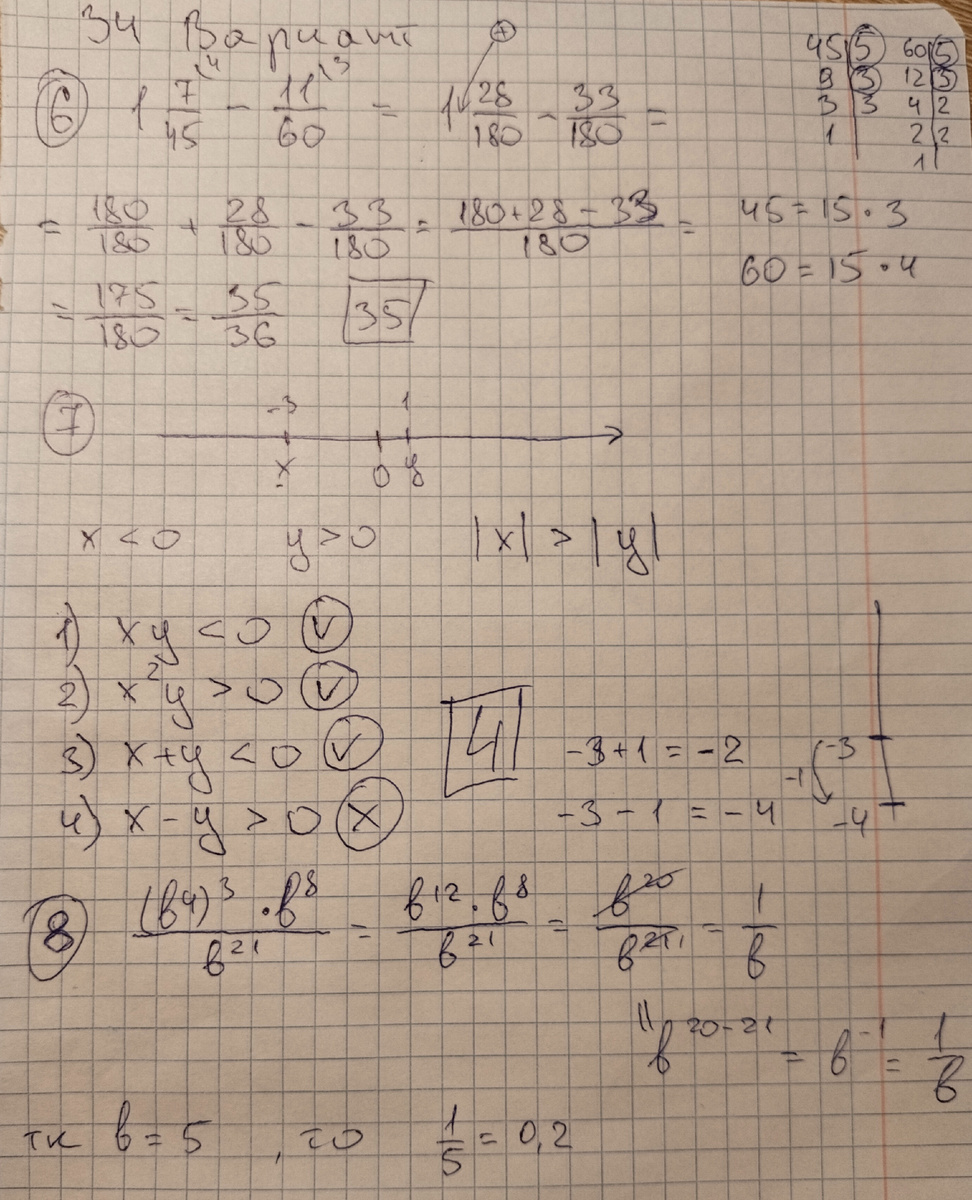 34 Вариант
⊕
45 | 5   60 | 5
9 | 3   12 | 3
3 | 3   4 | 2
1 |   2 | 2
1 |
6 1 7/45 \4 − 11/60 \3 = 1 28/180 − 33/180 =
= 180/180 + 28/180 − 33/180 = (180+28−33)/180 =
45 = 15 · 3
60 = 15 · 4
= 175/180 = 35/36 35
7
-3 1
x 0 y
x < 0 y > 0 |x| > |y|
1) xy < 0 ✓
2) x²y > 0 ✓
3) x+y < 0 ✓
4) x−y > 0 ✗
4
-3+1 = -2
-3 − 1 = -4
-1 -3
-4
8 ((b⁴)³ · b⁸)/b²¹ = (b¹² · b⁸)/b²¹ = b²⁰/b²¹ = 1/b
" b²⁰⁻²¹ = b⁻¹ = 1/b
тк b = 5 , то 1/5 = 0,2